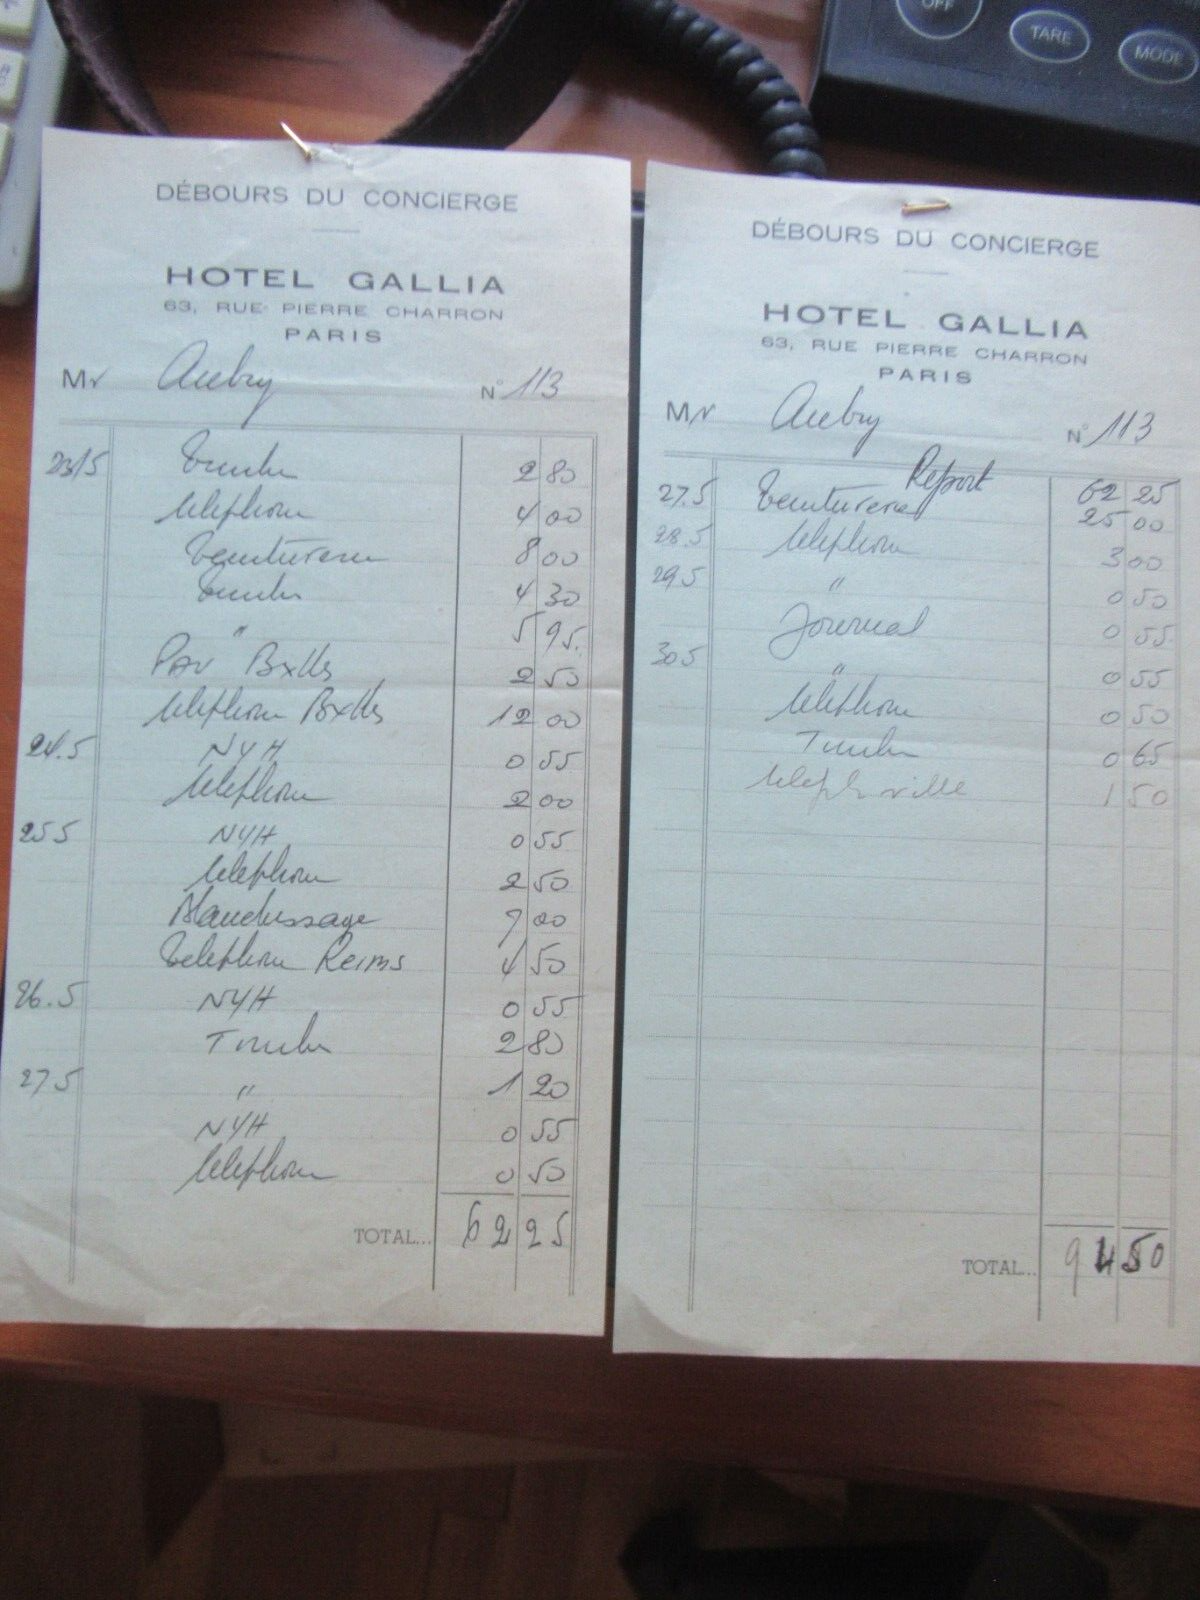 OFF
TARE
MODE
DÉBOURS DU CONCIERGE
HOTEL GALLIA
63, RUE PIERRE CHARRON
PARIS
Mr Aubry N° 113
23/5 Timbre 2 80
telephone 4 00
Teinturerie 8 00
Timbre 4 30
" 5 95
Par Bxlles 2 50
telephone Bxlles 12 00
24.5 NYH 0 55
telephone 2 00
25 5 NYH 0 55
telephone 2 50
Blanchissage 7 00
Telephone Reims 4 50
26.5 NYH 0 55
Timbre 2 80
27 5 " 1 20
NYH 0 55
telephone 0 50
TOTAL... 62 25
DÉBOURS DU CONCIERGE
HOTEL GALLIA
63, RUE PIERRE CHARRON
PARIS
Mr Aubry N° 113
Report 62 25
27.5 Teinturerie 25 00
28.5 telephone 3 00
29 5 " 0 50
Journal 0 55
30 5 " 0 55
telephone 0 50
Timbre 0 65
teleph ville 1 50
TOTAL... 94 50